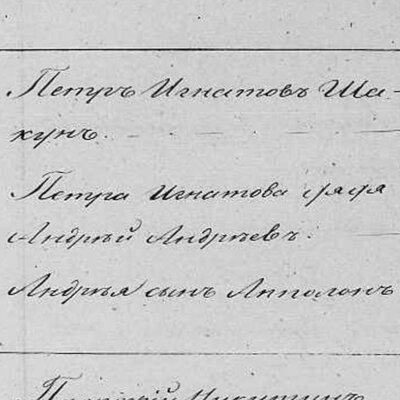 Петръ Игнатовъ Ша-
кунъ.
Петра Игнатова дядя
Андрѣй Андрѣевъ.
Андрѣя сынъ Апполонъ